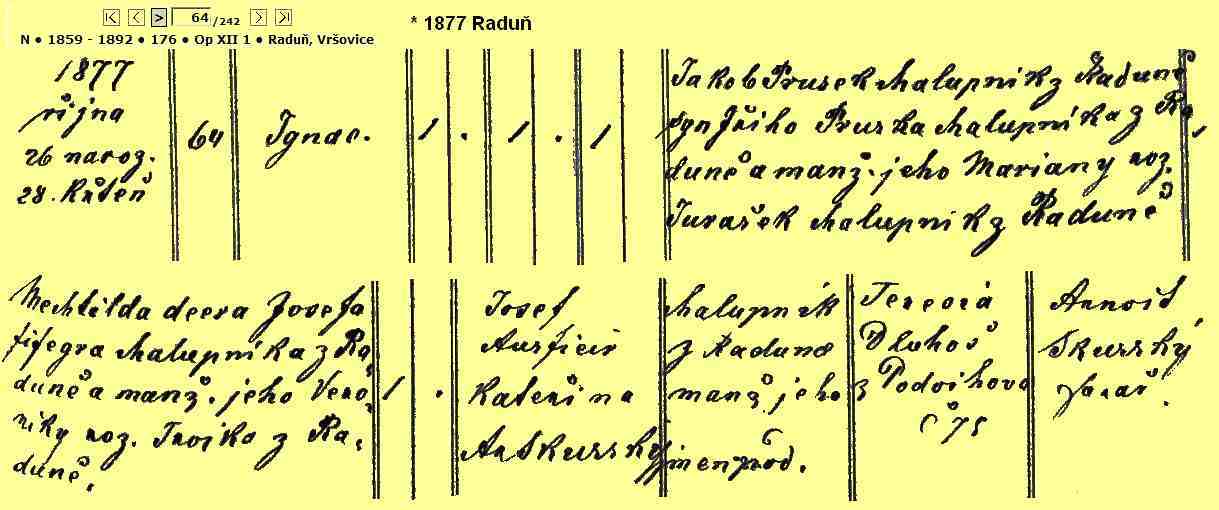 64 /242
* 1877 Raduň
N ● 1859 - 1892 ● 176 ● Op XII 1 ● Raduň, Vršovice
1877
října
26 naroz.
28. Křtěn
64
Ignac.
1 . 1 . 1
Jakob Prusek chalupník z Raduně
syn Jřiho Pruska chalupníka z Ra,
duně a manž. jeho Mariany roz.
Jurašek chalupník z Raduně
Mechtilda dcera Josefa
chalupníka z Ra,
duně a manž. jeho Vero,
niky roz. Trojka z Ra,
duně.
1 .
Josef
Kateřina
chalupník
z Raduně
manž jeho
Terezia
Dluhoš
z Podvihova
č 75
Arnošt
Skurský
farař.